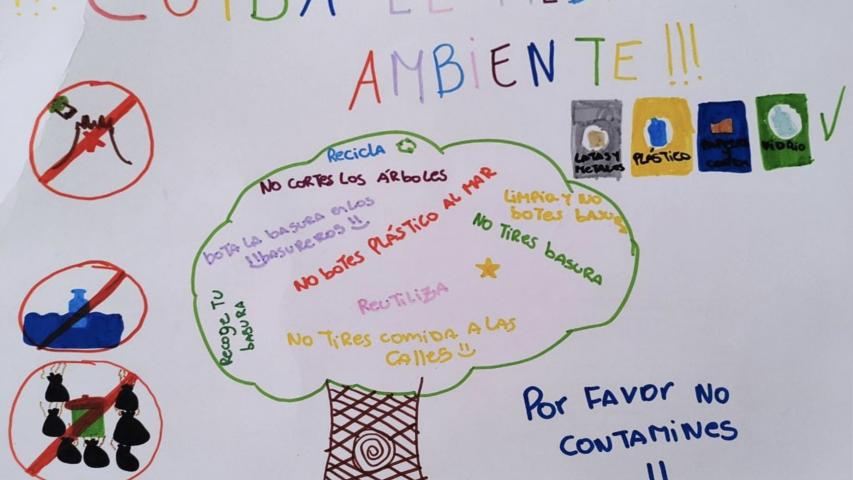 !!! CUIDA EL MEDIO
AMBIENTE !!!
LATAS Y METALES
PLÁSTICO
VIDRIO
RECICLA
NO CORTES LOS ÁRBOLES
BOTA LA BASURA EN LOS
!!BASUREROS!!
NO BOTES PLÁSTICO AL MAR
LIMPIA Y NO
BOTES BASURA
NO TIRES BASURA
RECOGE TU
BASURA
REUTILIZA
NO TIRES COMIDA A LAS
CALLES
POR FAVOR NO
CONTAMINES
!!